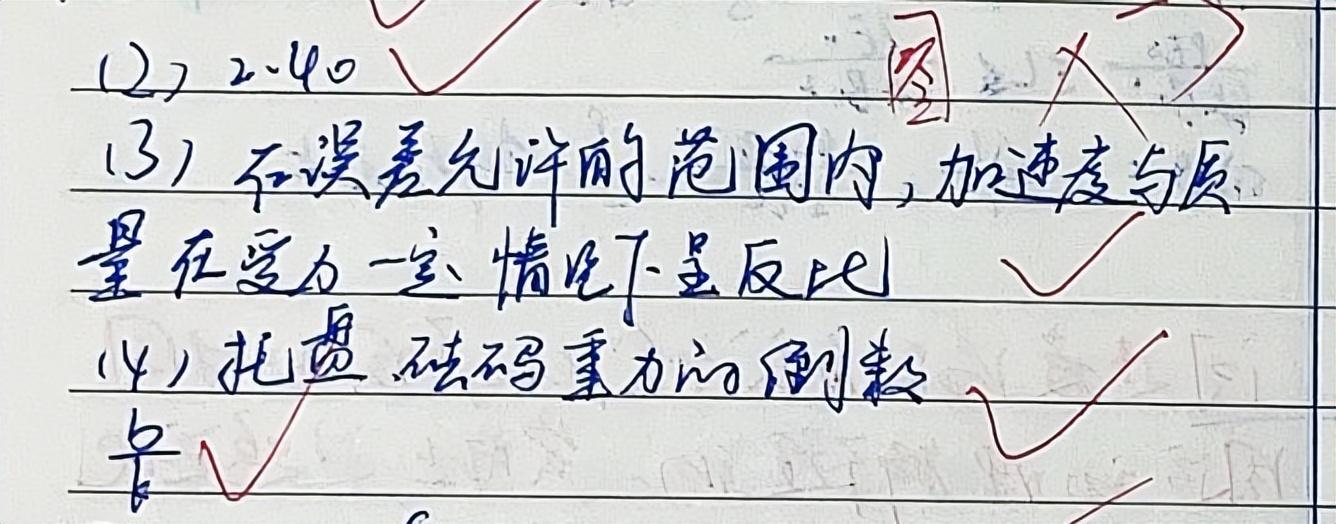 (2) 2.40
图
(3) 在误差允许的范围内,加速度与质
量在受力一定情况下呈反比
(4) 托盘.砝码重力的倒数
b/k